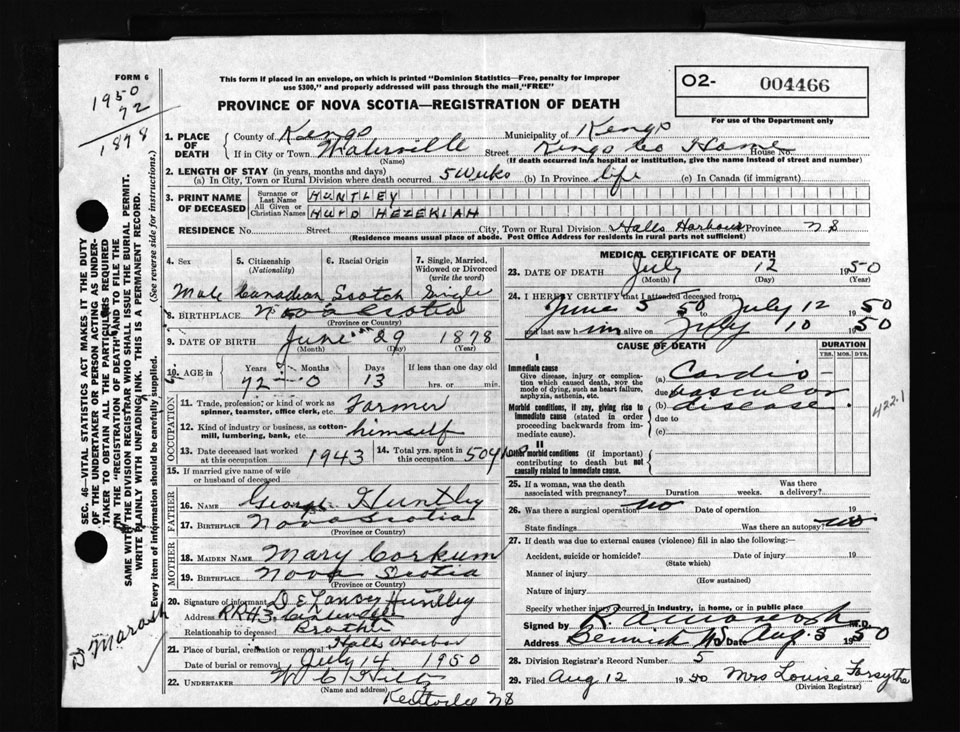 FORM 6
This form if placed in an envelope, on which is printed "Dominion Statistics—Free, penalty for improper
use $300," and properly addressed will pass through the mail "FREE"
O2- 004466
For use of the Department only
PROVINCE OF NOVA SCOTIA—REGISTRATION OF DEATH
1950
72
1878
1. PLACE OF DEATH County of Kings Municipality of Kings
If in City or Town Waterville Street Kings Co Home House No.
(Name) (If death occurred in a hospital or institution, give the name instead of street and number)
2. LENGTH OF STAY (in years, months and days)
(a) In City, Town or Rural Division where death occurred 5 Weeks (b) In Province life (c) In Canada (if immigrant)
3. PRINT NAME OF DECEASED Surname or Last Name HUNTLEY
All Given or Christian Names HURD HEZEKIAH
RESIDENCE No. Street City, Town or Rural Division Halls Harbour Province N S
(Residence means usual place of abode. Post Office Address for residents in rural parts not sufficient)
4. Sex 5. Citizenship (Nationality) 6. Racial Origin 7. Single, Married, Widowed or Divorced (write the word)
Male Canadian Scotch Single
8. BIRTHPLACE Nova Scotia
(Province or Country)
9. DATE OF BIRTH June 29 1878
(Month) (Day) (Year)
10. AGE in Years Months Days If less than one day old
72 0 13 hrs. or min.
OCCUPATION
11. Trade, profession, or kind of work as spinner, teamster, office clerk, etc. Farmer
12. Kind of industry or business, as cotton-mill, lumbering, bank, etc. himself
13. Date deceased last worked at this occupation 1943 14. Total yrs. spent in this occupation 50 yrs
15. If married give name of wife or husband of deceased
FATHER
16. NAME George Huntley
17. BIRTHPLACE Nova Scotia
MOTHER
18. MAIDEN NAME Mary Corkum
19. BIRTHPLACE Nova Scotia
(Province or Country)
20. Signature of informant D E Lansey Huntley
Address RR#3
Relationship to deceased Brother
21. Place of burial, cremation or removal Halls Harbor
Date of burial or removal July 14 1950
22. UNDERTAKER W C Hiltz
(Name and address)
Kentville NS
MEDICAL CERTIFICATE OF DEATH
23. DATE OF DEATH July 12 1950
(Month) (Day) (Year)
24. I HEREBY CERTIFY that I attended deceased from:
June 5 50 to July 12 1950
and last saw him alive on July 10 1950
CAUSE OF DEATH DURATION
YRS. MOS. DYS.
I
Immediate cause
Give disease, injury or complication which caused death, NOT the mode of dying, such as heart failure, asphyxia, asthenia, etc.
(a) Cardio
due to vascular
Morbid conditions, if any, giving rise to immediate cause (stated in order proceeding backwards from immediate cause).
(b) disease.
due to
(c)
422.1
II
Other morbid conditions (if important) contributing to death but not causally related to immediate cause.
25. If a woman, was the death associated with pregnancy? Duration weeks. Was there a delivery?
26. Was there a surgical operation no Date of operation 19
State findings Was there an autopsy? no
27. If death was due to external causes (violence) fill in also the following:
Accident, suicide or homicide? Date of injury 19
(State which)
Manner of injury
(How sustained)
Nature of injury
Specify whether injury occurred in industry, in home, or in public place
Signed by M.D.
Address Berwick NS Date Aug. 3 1950
28. Division Registrar's Record Number 5
29. Filed Aug 12 1950 Mrs Louise Forsythe
(Division Registrar)
SEC. 46—VITAL STATISTICS ACT MAKES IT THE DUTY
OF THE UNDERTAKER OR PERSON ACTING AS UNDER-
TAKER TO OBTAIN ALL THE PARTICULARS REQUIRED
IN THE "REGISTRATION OF DEATH" AND TO FILE THE
SAME WITH THE DIVISION REGISTRAR WHO SHALL ISSUE THE BURIAL PERMIT.
WRITE PLAINLY WITH UNFADING INK. THIS IS A PERMANENT RECORD.
Every item of information should be carefully supplied. (See reverse side for instructions.)